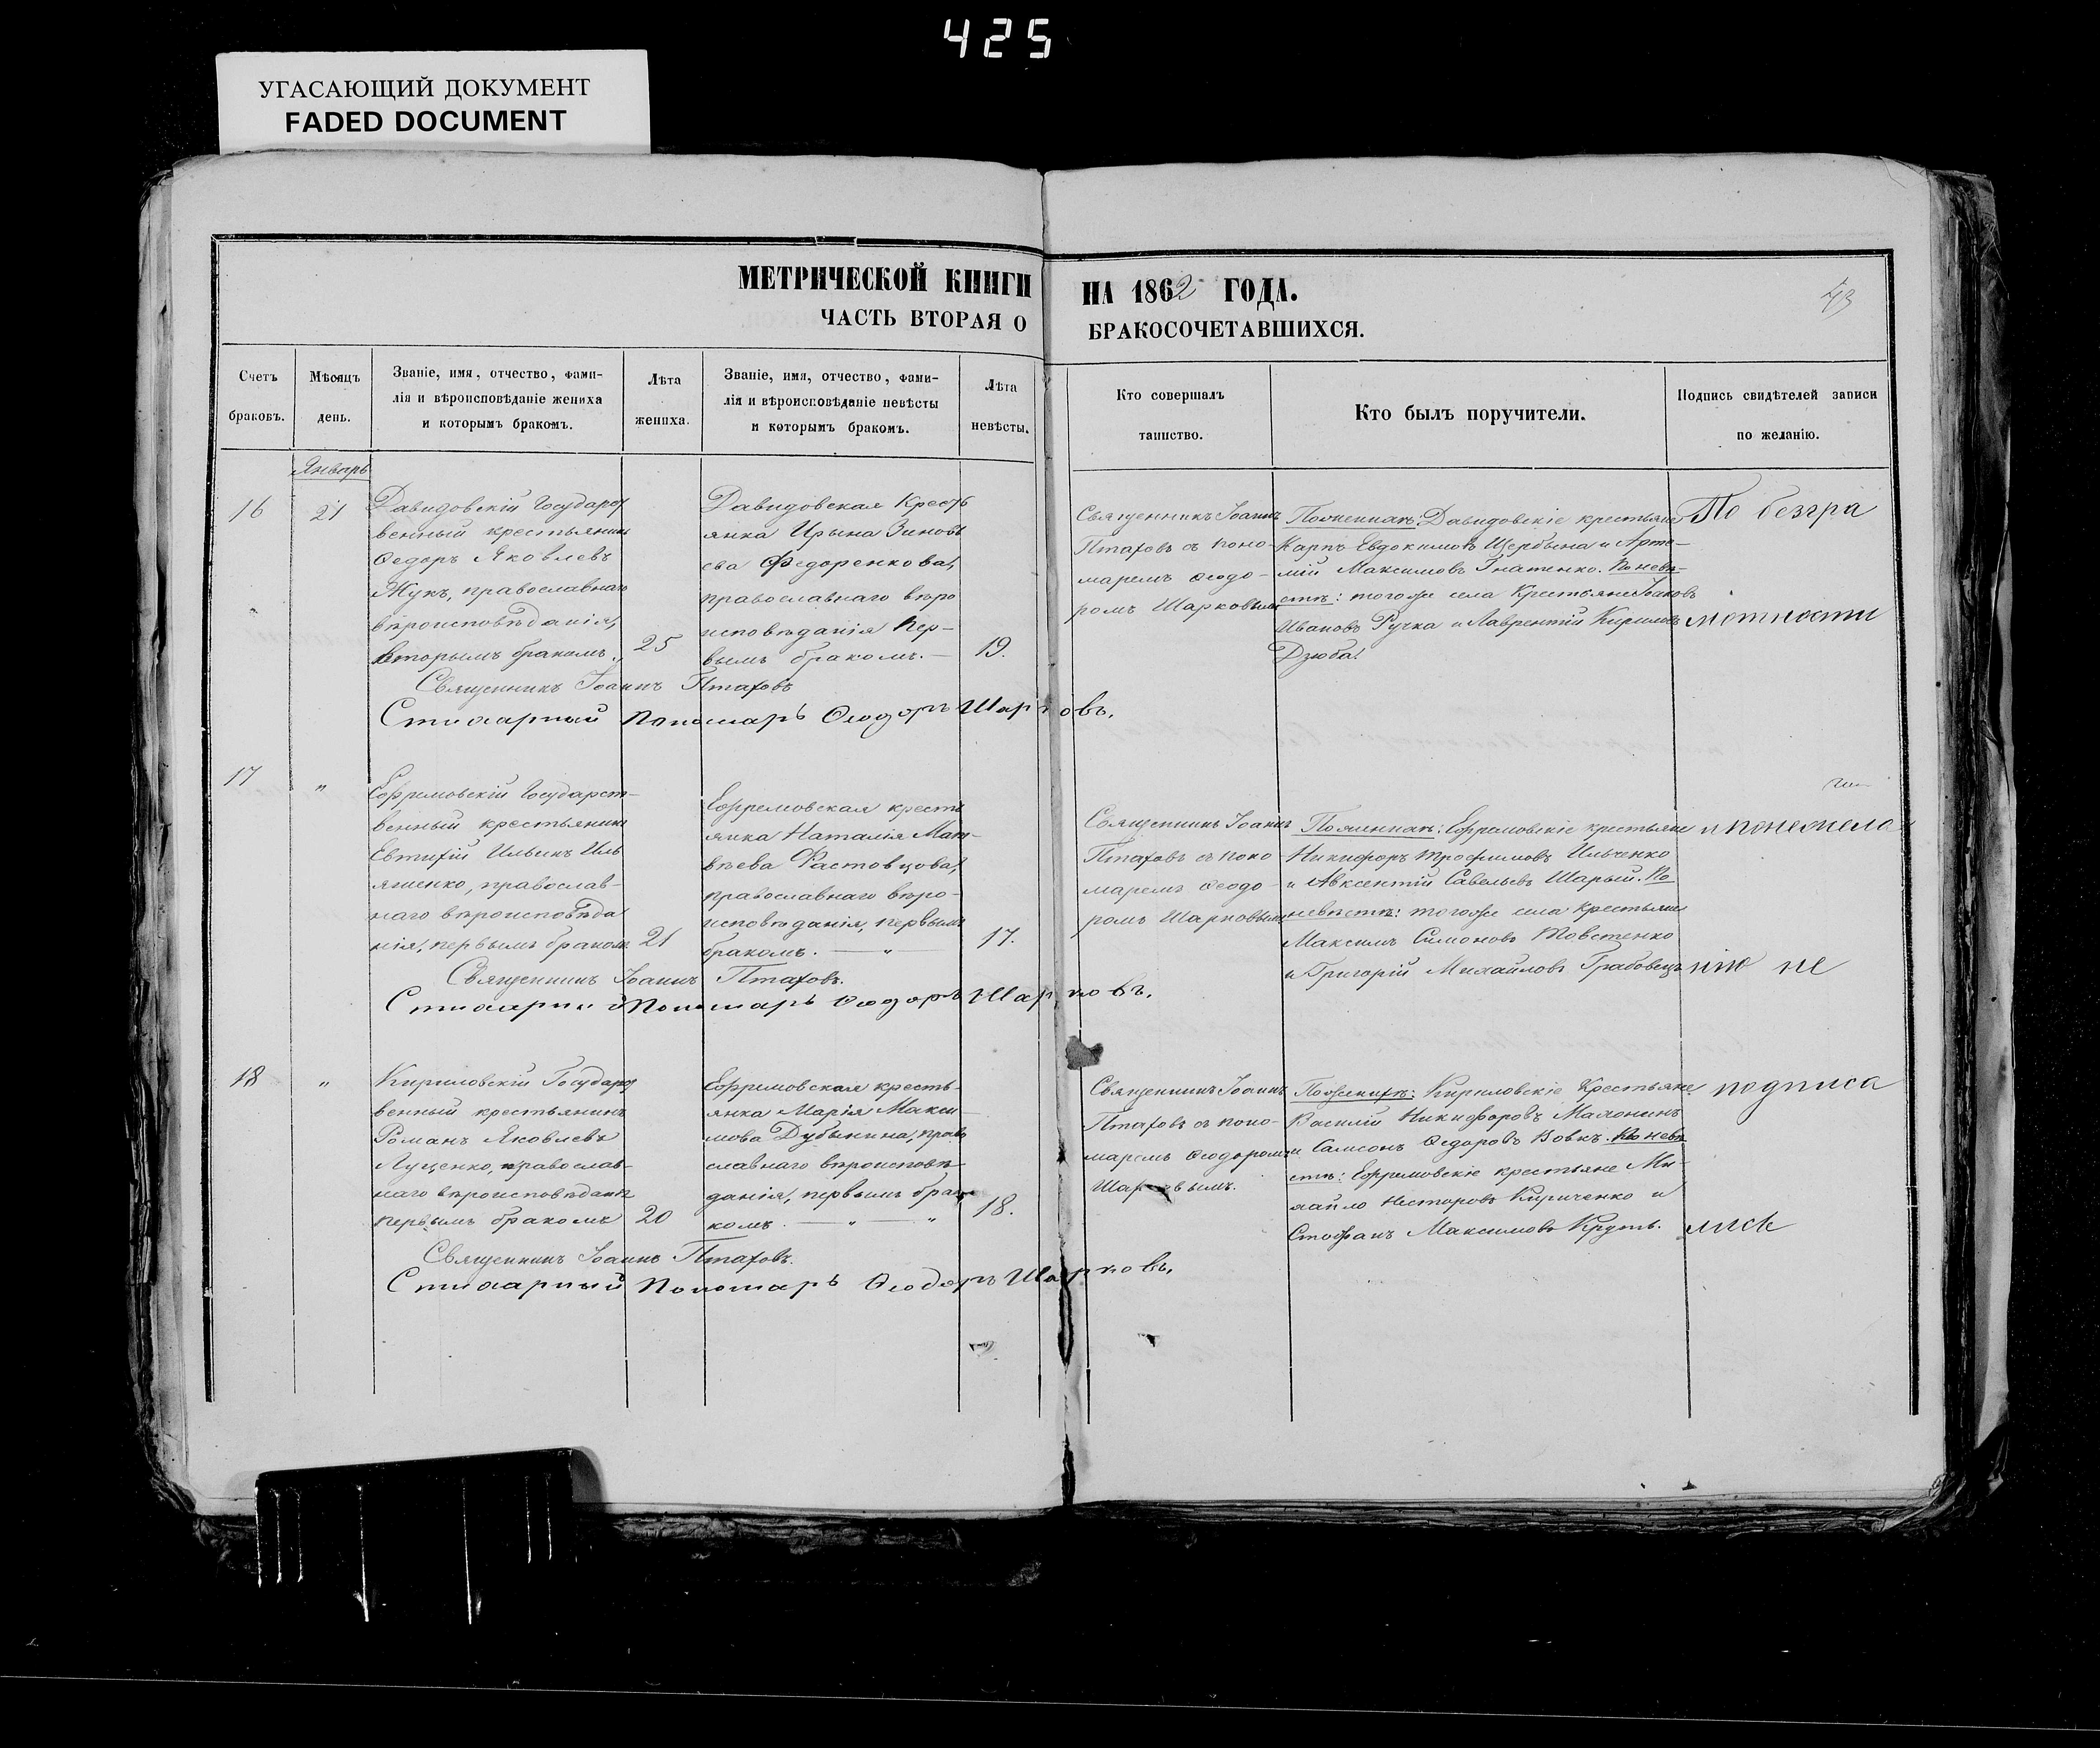 425
УГАСАЮЩИЙ ДОКУМЕНТ
FADED DOCUMENT
МЕТРИЧЕСКОЙ КНИГИ НА 1862 ГОДА.
ЧАСТЬ ВТОРАЯ О БРАКОСОЧЕТАВШИХСЯ.
43
Счетъ браковъ.
Мѣсяцъ день.
Званіе, имя, отчество, фами-
лія и вѣроисповѣданіе жениха
и которымъ бракомъ.
Лѣта жениха.
Званіе, имя, отчество, фами-
лія и вѣроисповѣданіе невѣсты
и которымъ бракомъ.
Лѣта невѣсты.
Кто совершалъ
таинство.
Кто былъ поручители.
Подпись свидѣтелей записи
по желанію.
Январь
16
21
Давидовскій Государст
венный крестьянинъ
Ѳедоръ Яковлевъ
Жукъ, православнаго
вѣроисповѣданія,
вторымъ бракомъ.
25
Давидовская Кресть
янка Ирына Зиновь
ева Федоренкова,
православнаго вѣро
исповѣданія пер-
вымъ бракомъ. —
19.
Священникъ Іоаннъ
Птаховъ съ поно-
маремъ Ѳеодо-
ромъ Шарковымъ
По женихѣ: Давидовскіе крестьяне
Карпъ Евдокимовъ Щербына и Арте-
мій Максимовъ Гнатенко. По невѣ-
стѣ: того же села Крестьяне Іаковъ
Ивановъ Ручка и Лаврентій Кириловъ
Дзюба.
По безгра
мотности
Священникъ Іоаннъ Птаховъ
Стихарный Пономарь Ѳеодоръ Шарковъ.
17
"
Ефремовскій Государст-
венный крестьянинъ
Евтихій Ильинъ Иль
яшенко, православ-
наго вѣроисповѣда
нія, первымъ бракомъ
21
Ефремовская кресть
янка Наталія Мат-
вѣева Растовцова,
православнаго вѣро-
исповѣданія, первымъ
бракомъ. — " —
17.
Священникъ Іоаннъ
Птаховъ съ поно
маремъ Ѳеодо-
ромъ Шарковымъ
По женихѣ: Ефремовскіе крестьяне
Никифоръ Трофимовъ Ильченко
и Авксентій Савельевъ Шарый. По
невѣстѣ: того же села крестьяне
Максимъ Симоновъ Товстенко
и Григорій Михайловъ Грабовецъ
и понежела
нію не
Священникъ Іоаннъ Птаховъ.
Стихарный Пономарь Ѳеодоръ Шарковъ.
18
"
Кириловскій Государст
венный крестьянинъ
Романъ Яковлевъ
Луценко, православ-
наго вѣроисповѣдан
первымъ бракомъ
20
Ефремовская кресть-
янка Марія Макси-
мова Дубынина, право
славнаго вѣроисповѣ
данія, первымъ бра-
комъ. — " — "
18.
Священникъ Іоаннъ
Птаховъ съ поно-
маремъ Ѳеодоромъ
Шарковымъ.
По женихѣ: Кириловскіе Крестьяне
Василій Никифоровъ Махонинъ
и Самсонъ Ѳедоровъ Вовкъ. По невѣ
стѣ: Ефремовскіе крестьяне Ми-
хайло Несторовъ Кириченко и
Стефанъ Максимовъ Круть.
подписа
лись
Священникъ Іоаннъ Птаховъ.
Стихарный Пономарь Ѳеодоръ Шарковъ.